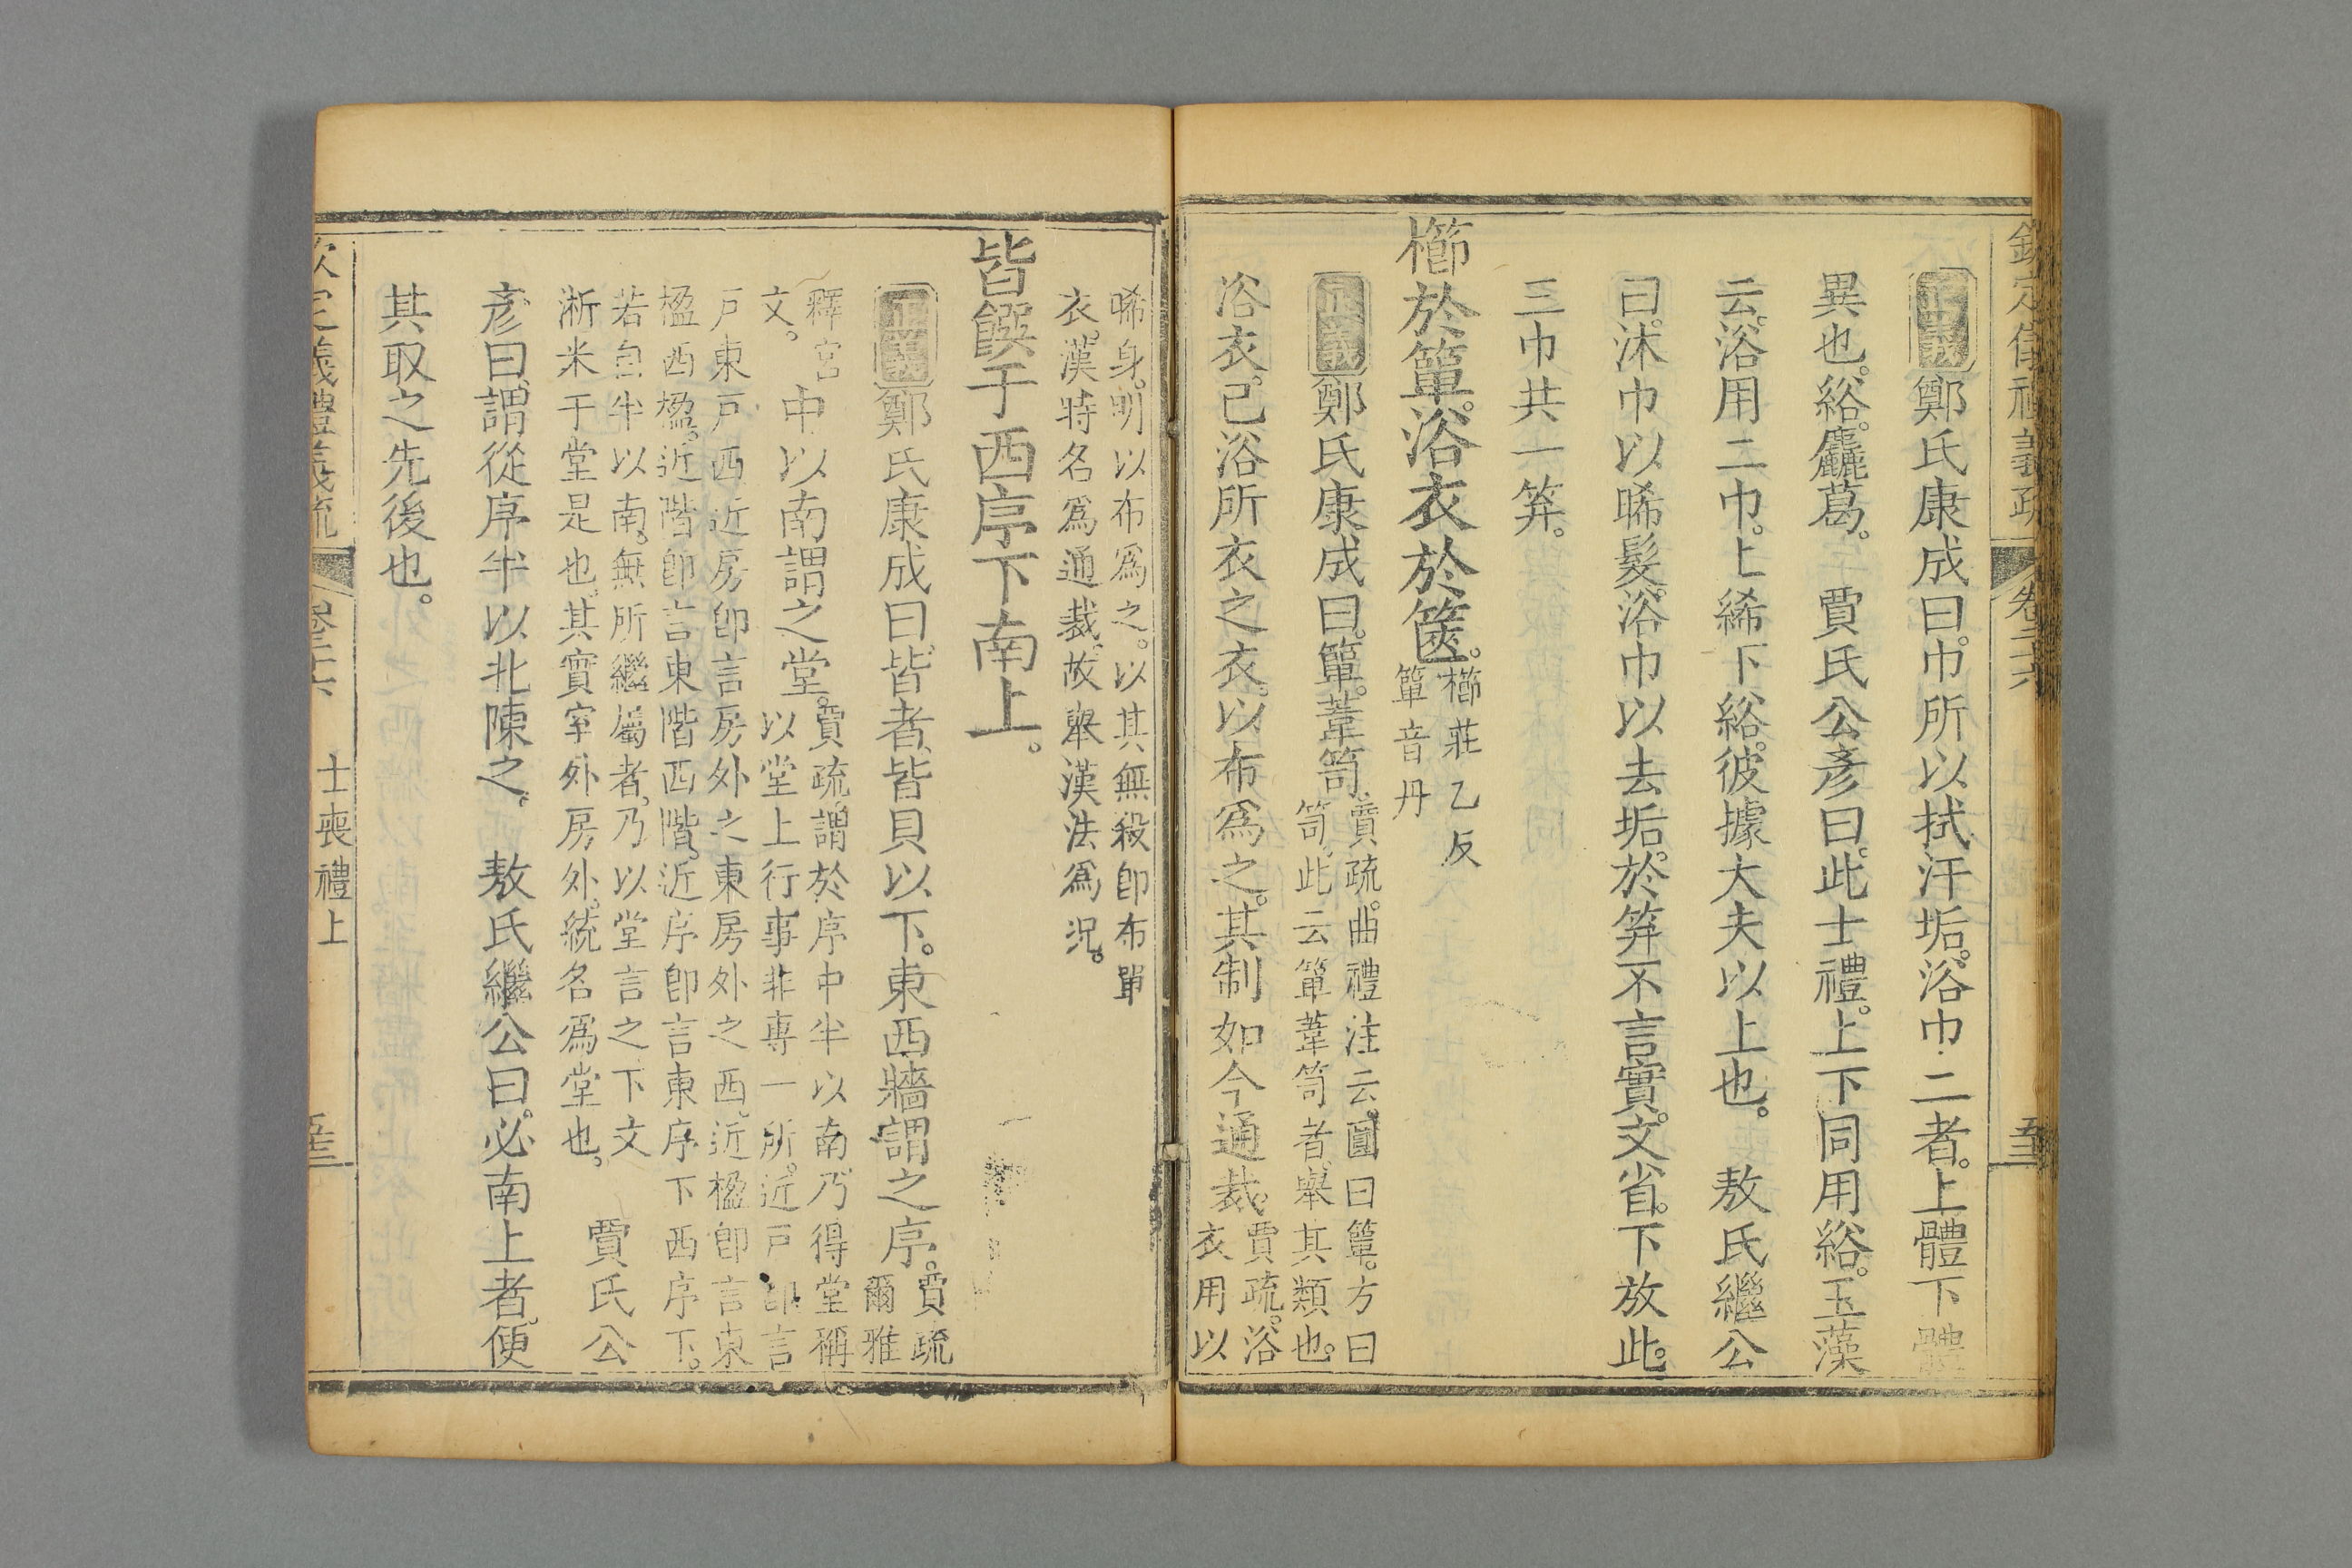 欽定儀禮義疏 卷二十六 五三
正義鄭氏康成曰。巾所以拭汗垢。浴巾二者。上體下體
異也。綌。麤葛。 賈氏公彥曰。此士禮。上下同用綌。玉藻
云。浴用二巾。上絺下綌。彼據大夫以上也。 敖氏繼公
曰。沐巾以晞髮。浴巾以去垢。於笲不言實。文省。下放此。
三巾共一笲。
櫛於簞。浴衣於篋。
櫛莊乙反
簞音丹
正義鄭氏康成曰。簞。葦笥。
賈疏。曲禮注云。圓曰簞。方曰
笥。此云簞葦笥者。舉其類也。
浴衣。已浴所衣之衣。以布爲之。其制如今通裁。
賈疏。浴
衣用以
晞身。明以布爲之。以其無殺卽布單
衣。漢時名爲通裁。故舉漢法爲況。
皆饌于西序下南上。
正義鄭氏康成曰。皆者。皆貝以下。東西牆謂之序。
賈疏
爾雅
釋宮
文。
中以南謂之堂。
賈疏。謂於序中半以南。乃得堂稱
以堂上行事非專一所。近戶卽言
戶東戶西近房卽言房外之東房外之西。近楹卽言東
楹西楹。近階卽言東階西階。近序卽言東序下西序下。
若自半以南。無所繼屬者。乃以堂言之下文
淅米于堂是也。其實室外房外。統名爲堂也。
賈氏公
彥曰。謂從序半以北陳之。 敖氏繼公曰。必南上者。便
其取之先後也。
欽定儀禮義疏 卷二十六 士喪禮上 五三